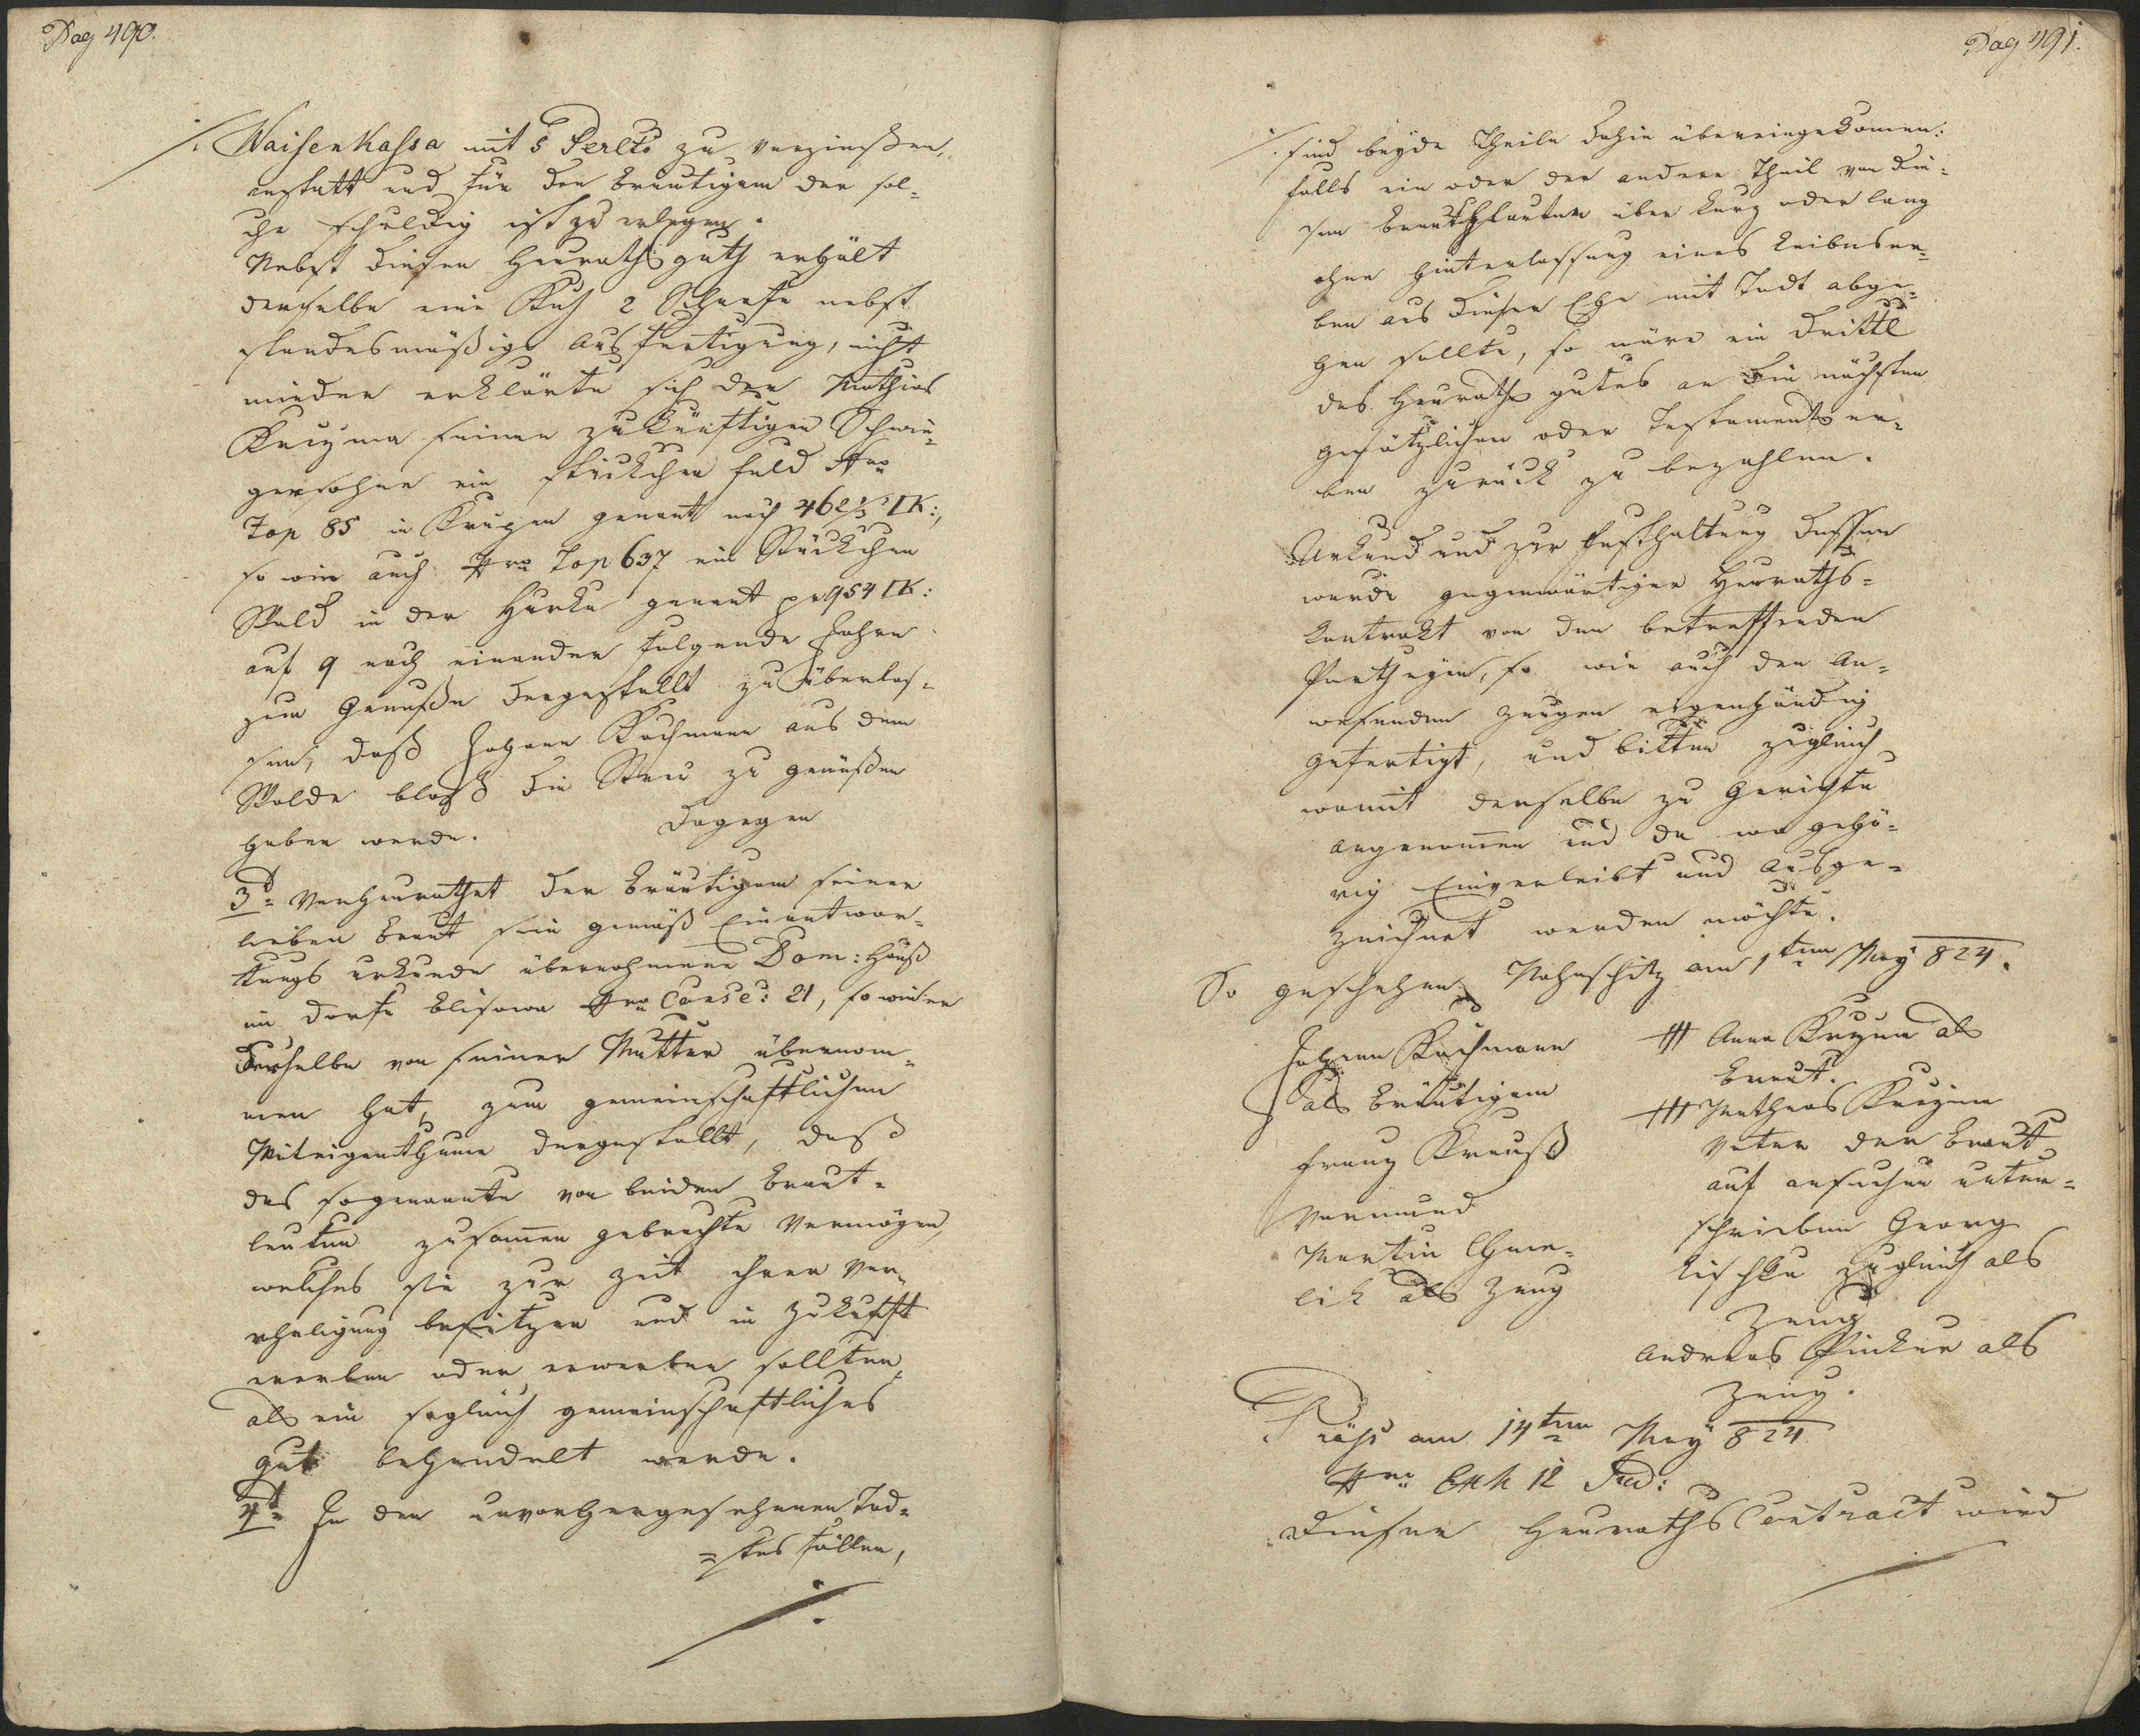 Pag 490.
./. Waisenkassa mit 5 Percto zu verzinßen,
anstatt und für den Bräutigam der sol-
che schuldig ist zu erlegen.
Nebst diesen Heurathsguth erhält
derselbe eine Kuh 2 Schaafe nebst
standesmäßige Ausfertigung, nicht
minder erklärte sich der Mathias
seinen zukünftigen Schwie-
gersohne ein stückchen Feld Nro
Top 85 in genant nach 462/3 □K:,
so wie auch Nro Top 637 ein Stückchen
Wald in der Hurka genant pr 954 □K:
auf 9 nach einander folgende Jahre
zum Genuße dergestallt zu überlas-
sen, daß Johann Kachmann aus dem
Walde bloß die Streu zu genüßen
haben werde. Dagegen
3t= Verheurathet der Bräutigam seiner
lieben Braut sein gemäß Einantwor-
tungs urkunde übernohmene Dom: Hauß
im Dorfe Blisowa Nro Conse: 21, so wie er
derselbe von seiner Mutter übernom-
men hat, zum gemeinschaftlichen
Miteigenthume dergestallt, daß
das sogenannte von beiden Braut-
leuten zusamen gebrachte Vermögen,
welches sie zur Zeit ihrer Ver-
eheligung besitzen und in Zukunft
ererben oder erwerben sollten,
als ein sogleich gemeinschaftliches
gut behandelt werde.
4t= In den unvorhergesehenen Tod-
=tes fällen,
./.
Pag 491.
./. sind beyde Theile dahin übereingekomen:
falls ein oder der andere Theil von die-
sen Brautleuten über kurz oder lang
ohne Hinterlassung eines Leibeser-
ben aus dieser Ehe mit Todt abge-
hen sollte, so wäre ein Drittl
des Heuraths gutes an die nächsten
gesätzlichen oder Testaments er-
ben zurück zu bezahlen.
Urkund und zur Festhaltung dessen
wurde gegenwärtiger Heuraths-
kontrakt von den betreffenden
Partheyen, so wie auch den An-
wesenden Zeugen eigenhändig
gefertigt, und bitten zugleich
womit derselbe zu Gerichte
angenomen und da wo gehö-
rig Einverleibt und Ausge-
zeichnet werden möchte.
So geschehen am 1ten May 824.
Johann Kachmann
als Bräutigam
Franz Krauß
Vormund
Martin Chme-
lik als Zeug
+++ Anna als
Braut.
+++ Mathias
Vater der Braut
auf ansuchen unter-
schrieben Georg
Lischka zugleich als
Zeug
Andreas als
Zeug.
Präs am 14ten May 824
Nro Exh 12 Jud:
Diesen Heuraths Contract wird
./.